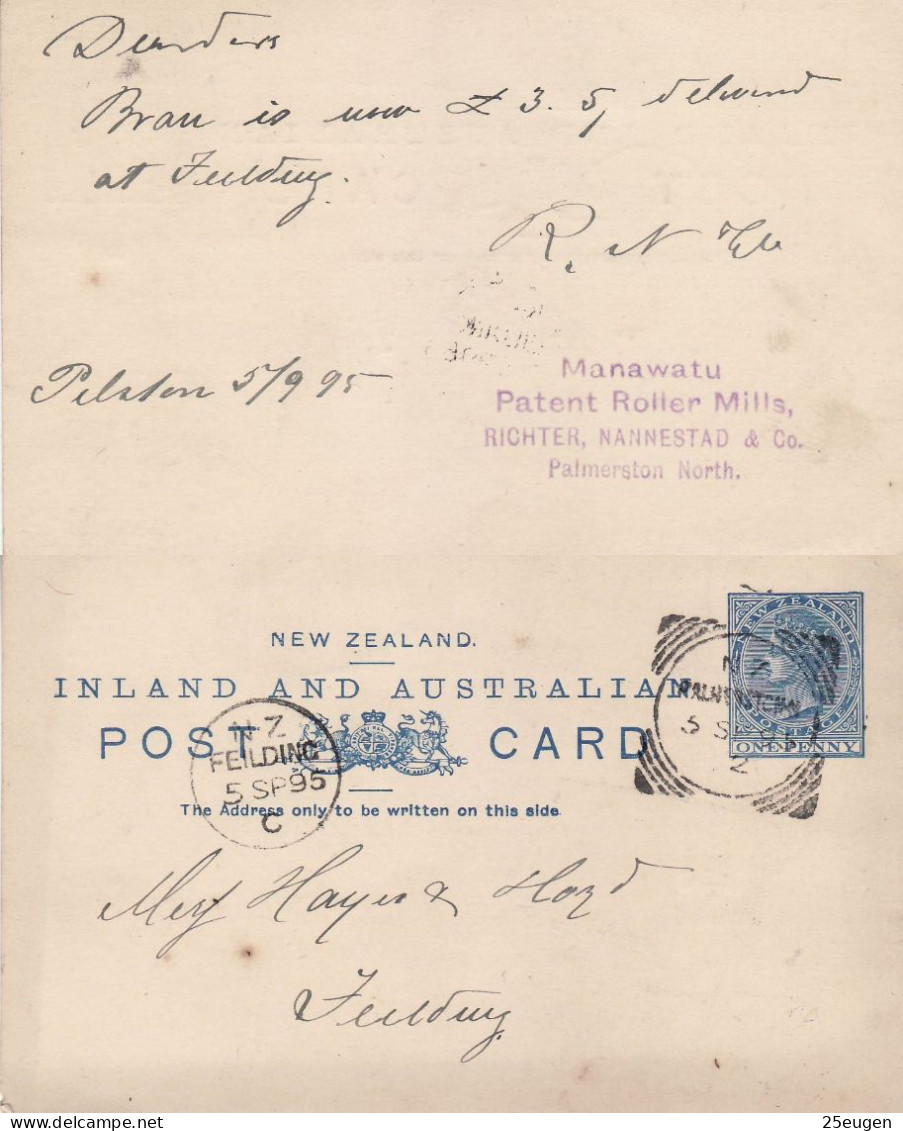 Dear Sirs
Bran is now £3.5/ delivered
at Feilding.
R. N & Co
P'elston 5/9 95
Manawatu
Patent Roller Mills,
RICHTER, NANNESTAD & Co.
Palmerston North.
NEW ZEALAND
POSTAGE
ONE PENNY
NEW ZEALAND.
INLAND AND AUSTRALIAN
POST CARD
NZ
FEILDING
5 SP 95
C
N Z
PALMERSTON N
5 SP 95
2
The Address only to be written on this side
Mess Hayes & Hoyd
Feilding
delcampe.net
25eugen